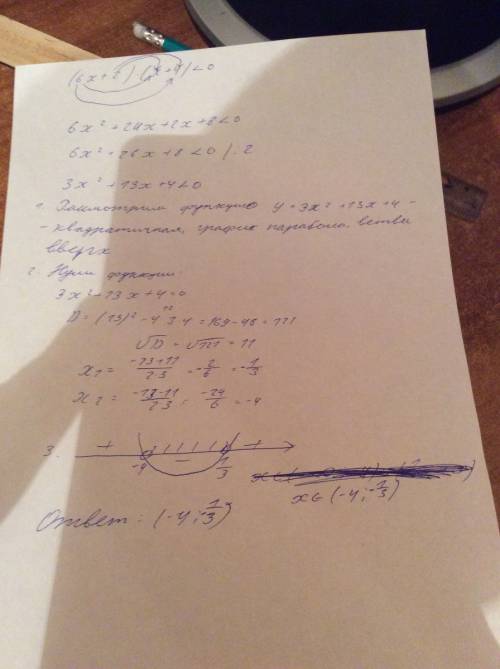 (6x+2)·(x+4)<0
6x²+24x+2x+8<0
6x²+26x+8<0 /:2
3x²+13x+4<0
1. Рассмотрим функцию y=3x²+13x+4 -
- квадратичная, график парабола, ветви
вверх
2. Нули функции:
3x²-13x+4=0
D=(13)²-4·3·4=169-48=121
√D=√121=11
x₁=(-13+11)/(2·3)=-2/6=-1/3
x₂=(-13-11)/(2·3)=-24/6=-4
3. + - +
-4 -1/3
x∈(-4;-1/3)
Ответ: (-4;-1/3)